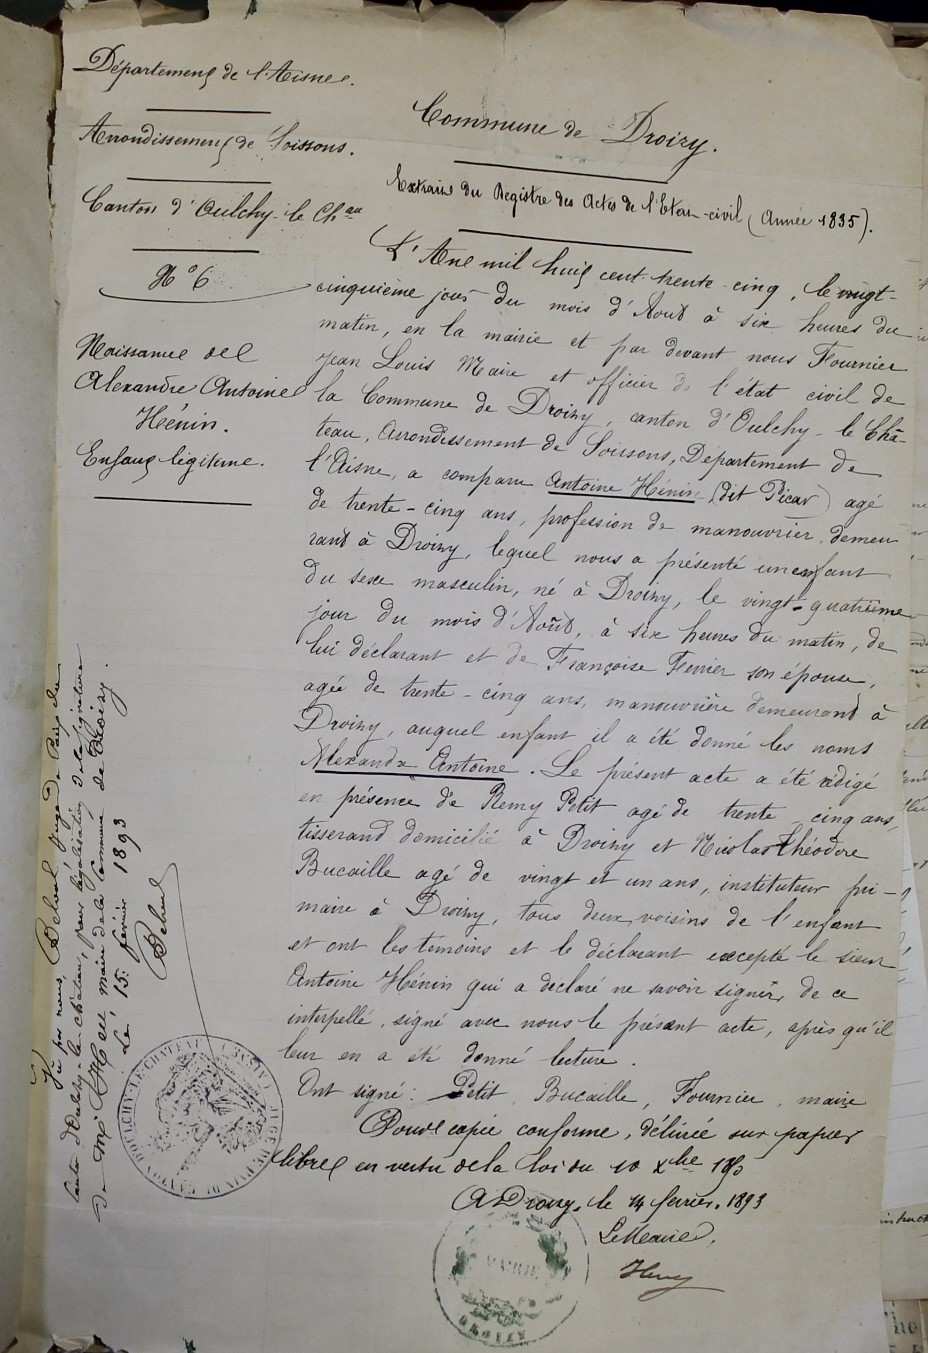 Département de l'Aisne.
Arrondissement de Soissons.
Canton d'Oulchy-le Chau
N° 6
Naissance de
Alexandre Antoine
Hénin.
Enfant légitime.
Commune de Droizy.
Extrait du Registre des Actes de l'Etat-civil (Année 1835).
L'An mil huit cent trente-cinq, le vingt-
cinquième jour du mois d'Août à six heures du
matin, en la mairie et par devant nous Fournier
Jean Louis Maire et officier de l'état civil de
la Commune de Droizy, canton d'Oulchy-le Châ-
teau, Arrondissement de Soissons, Département de
l'Aisne, a comparu Antoine Hénin (dit Picar) agé
de trente-cinq ans, profession de manouvrier, demeu
rant à Droizy, lequel nous a présenté un enfant
du sexe masculin, né à Droizy, le vingt-quatrième
jour du mois d'Août, à six heures du matin, de
lui déclarant et de Françoise Ferrier son épouse,
agée de trente-cinq ans, manouvrière demeurant à
Droizy, auquel enfant il a été donné les noms
Alexandre Antoine. Le présent acte a été rédigé
en présence de Remy Petit agé de trente-cinq ans,
tisserand domicilié à Droizy et Nicolas Théodore
Bucaille agé de vingt et un ans, instituteur pri-
maire à Droizy, tous deux voisins de l'enfant
et ont les témoins et le déclarant excepté le sieur
Antoine Hénin qui a déclaré ne savoir signer, de ce
interpellé, signé avec nous le présent acte, après qu'il
leur en a été donné lecture.
Ont signé: Petit, Bucaille, Fournier, maire
Pour copie conforme, délivrée sur papier
libre en vertu de la loi du 10 Xbre 1850
A Droizy, le 14 février 1893
Le Maire,
Vu par nous, juge de Paix du
canton d'Oulchy-le-château, pour légalisation de la signature
de Mr. maire de la commune de Droizy.
Le 15 février 1893
JUGE DE PAIX DU CANTON D'OULCHY-LE-CHATEAU (AISNE)
MAIRIE
DROIZY